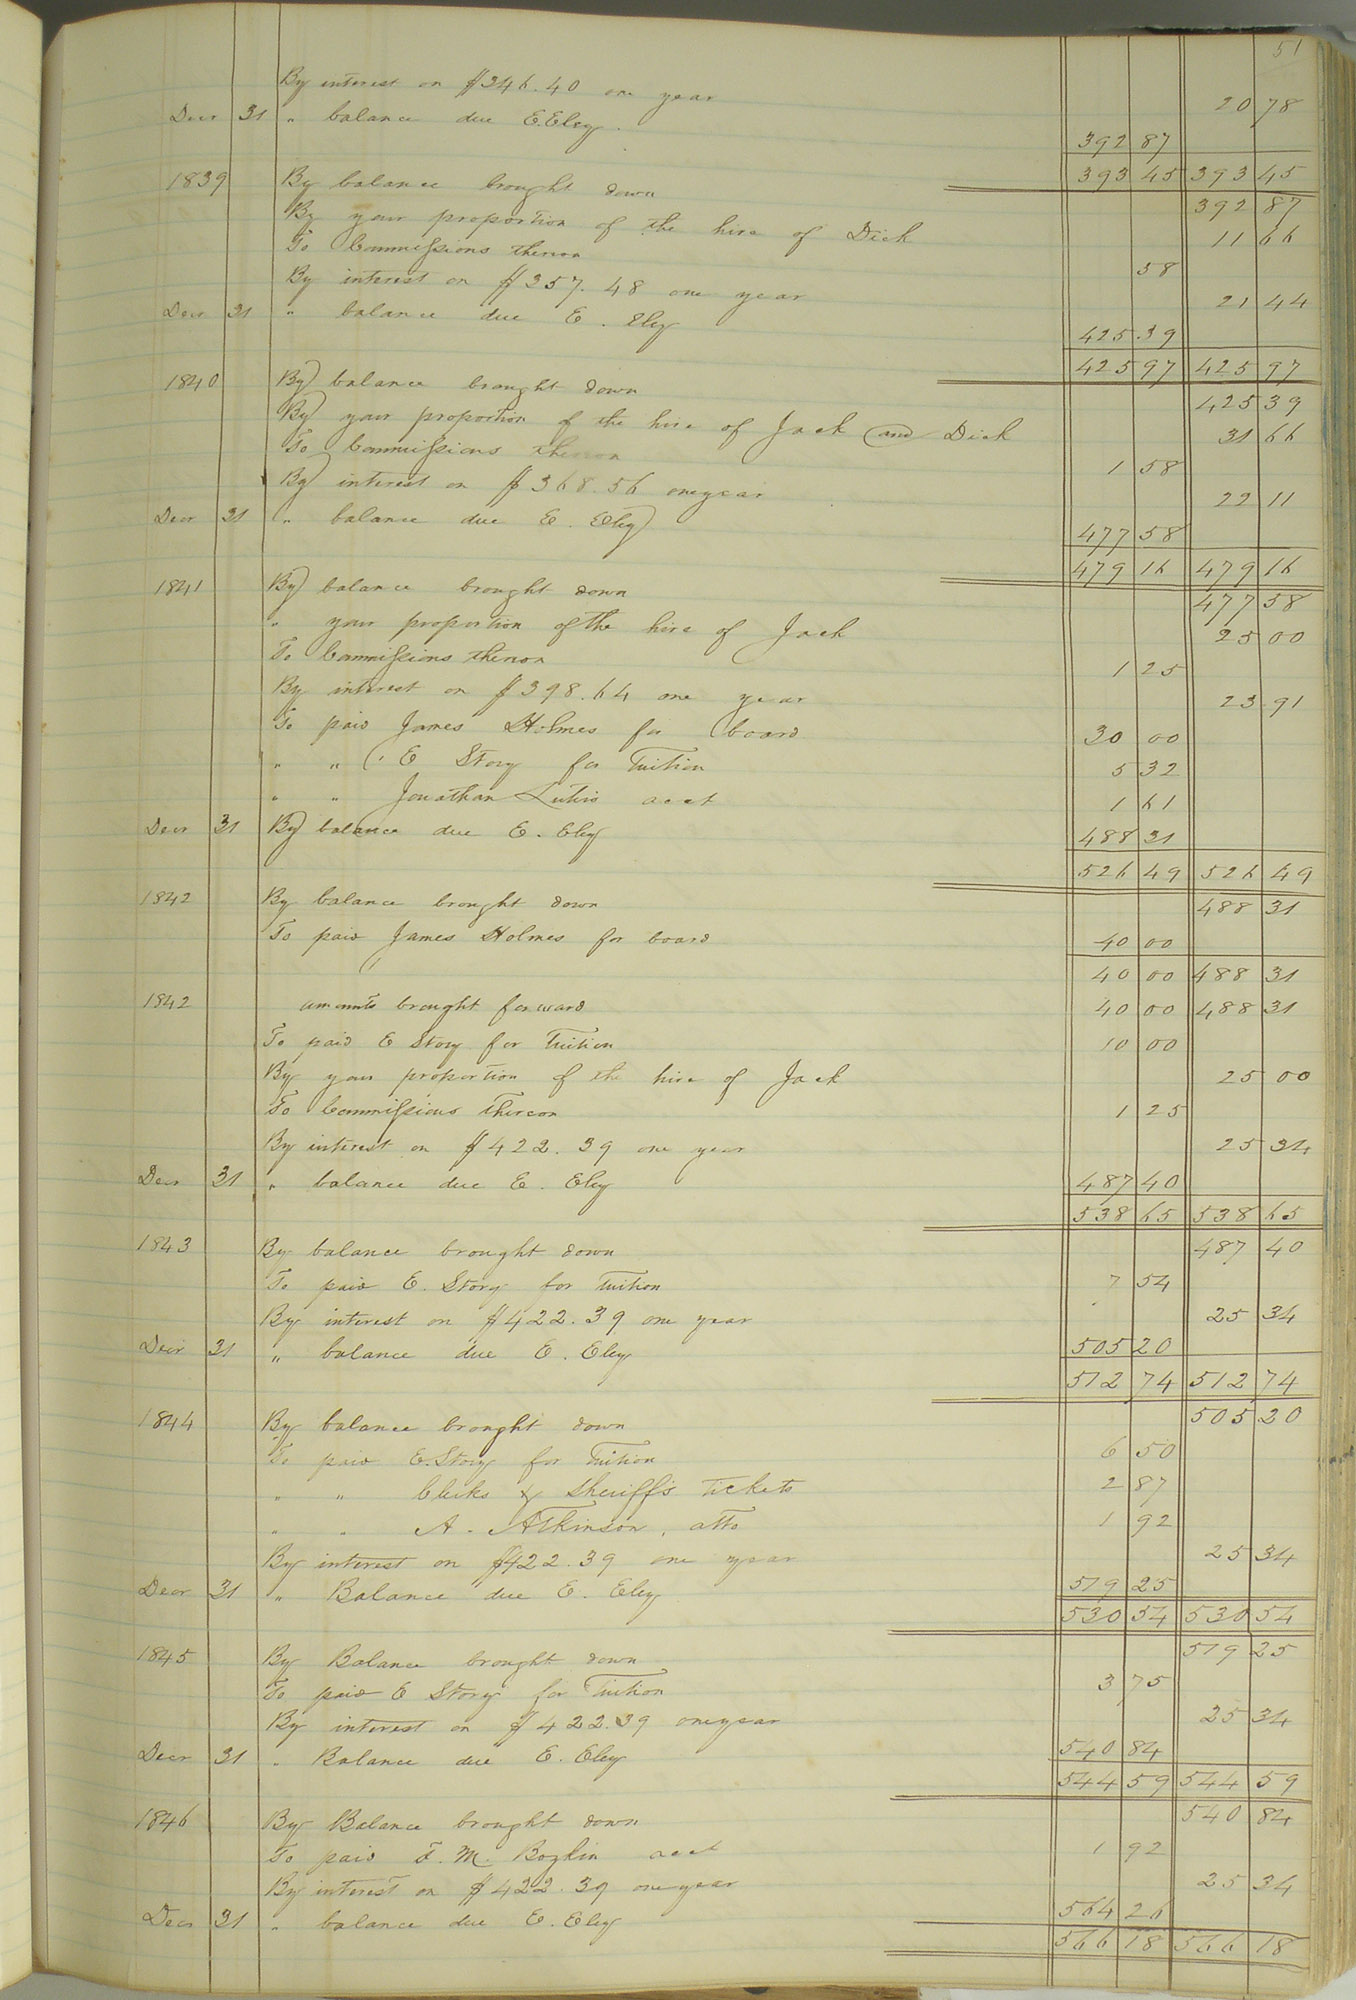 51
By interest on $346.40 one year 20 78
Decr 31 " balance due E. Eley. 392 87
393 45 393 45
1839 By balance brought down 392 87
By your proportion of the hire of Dick 11 66
To Commissions thereon 58
By interest on $357.48 one year 21 44
Decr 31 " balance due E. Eley 425 39
425 97 425 97
1840 By balance brought down 425 39
By your proportion of the hire of Jack and Dick 31 66
To Commissions thereon 1 58
By interest on $368.56 one year 22 11
Decr 31 " balance due E. Eley 477 58
479 16 479 16
1841 By balance brought down 477 58
" your proportion of the hire of Jack 25 00
To Commissions thereon 1 25
By interest on $398.64 one year 23 91
To paid James Holmes for board 30 00
" " E Story for Tuition 5 32
" " Jonathan acct 1 61
Decr 31 By balance due E. Eley 488 31
526 49 526 49
1842 By balance brought down 488 31
To paid James Holmes for board 40 00
40 00 488 31
1842 amounts brought forward 40 00 488 31
To paid E Story for Tuition 10 00
By your proportion of the hire of Jack 25 00
To Commissions thereon 1 25
By interest on $422.39 one year 25 34
Decr 31 " balance due E. Eley 487 40
538 65 538 65
1843 By balance brought down 487 40
To paid E. Story for Tuition 7 54
By interest on $422.39 one year 25 34
Decr 31 " balance due E. Eley 505 20
512 74 512 74
1844 By balance brought down 505 20
To paid E Story for Tuition 6 50
" " Clerks & Sheriffs Tickets 2 87
" " A. Atkinson, atto 1 92
By interest on $422.39 one year 25 34
Decr 31 " Balance due E. Eley 519 25
530 54 530 54
1845 By Balance brought down 519 25
To paid E Story for Tuition 3 75
By interest on $422.39 one year 25 34
Decr 31 " Balance due E. Eley 540 84
544 59 544 59
1846 By Balance brought down 540 84
To paid F. M. Bozkin acct 1 92
By interest on $422.39 one year 25 34
Decr 31 " balance due E. Eley 564 26
566 18 566 18